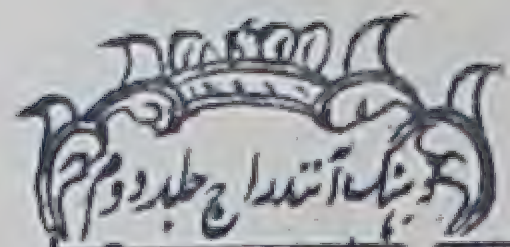 فرهنگ آنندراج جلد دوم